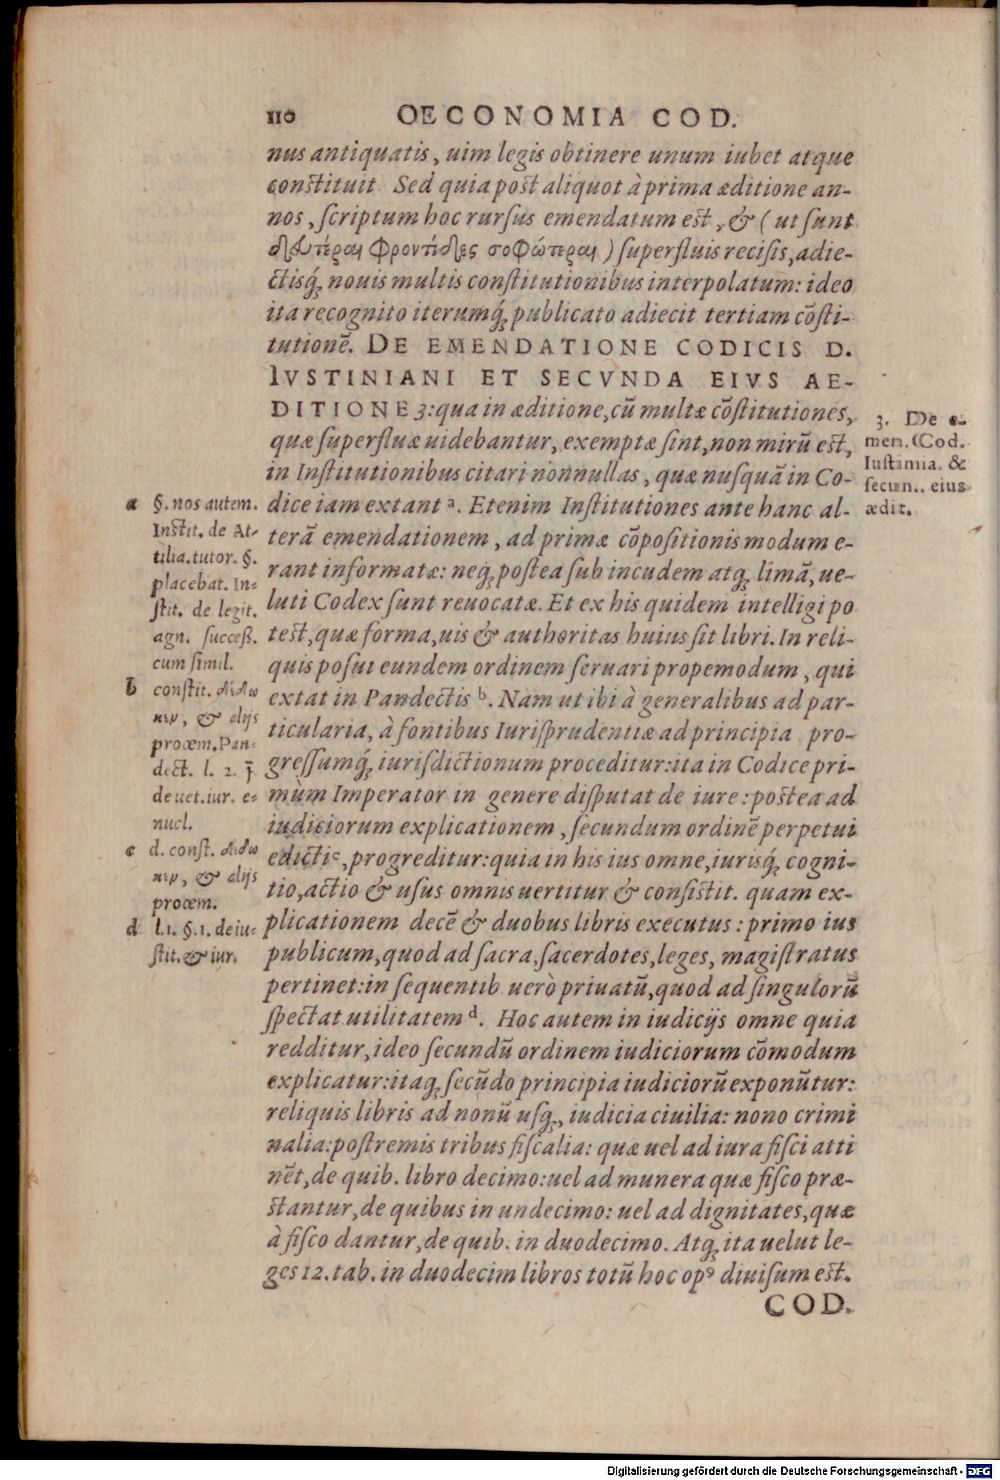 110 OECONOMIA COD.
nus antiquatis, uim legis obtinere unum iubet atque
constituit Sed quia post aliquot à prima æditione an-
nos, scriptum hoc rursus emendatum est, & (ut sunt
δεύτεραι φροντίδες σοφώτεραι) superfluis recisis, adie-
ctisq́; nouis multis constitutionibus interpolatum: ideo
ita recognito iterumq́; publicato adiecit tertiam cõsti-
tutionẽ. DE EMENDATIONE CODICIS D.
IVSTINIANI ET SECVNDA EIVS AE-
DITIONE 3: qua in æditione, cũ multæ cõstitutiones,
quæ superfluæ uidebantur, exemptæ sint, non mirũ est,
in Institutionibus citari nonnullas, quæ nusquã in Co-
dice iam extant a. Etenim Institutiones ante hanc al-
terã emendationem, ad primæ cõpositionis modum e-
rant informatæ: neq; postea sub incudem atq; limã, ue-
luti Codex sunt reuocatæ. Et ex his quidem intelligi po
test, quæ forma, uis & authoritas huius sit libri. In reli-
quis posui eundem ordinem seruari propemodum, qui
extat in Pandectis b. Nam ut ibi à generalibus ad par-
ticularia, à fontibus Iurisprudentiæ ad principia pro-
gressumq́; iurisdictionum proceditur: ita in Codice pri-
mùm Imperator in genere disputat de iure: postea ad
iudiciorum explicationem, secundum ordinẽ perpetui
edicti c, progreditur: quia in his ius omne, iurisq́; cogni-
tio, actio & usus omnis uertitur & consistit. quam ex-
plicationem decẽ & duobus libris executus: primo ius
publicum, quod ad sacra, sacerdotes, leges, magistratus
pertinet: in sequentib uerò priuatũ, quod ad singulorũ
spectat utilitatem d. Hoc autem in iudicijs omne quia
redditur, ideo secundũ ordinem iudiciorum cõmodum
explicatur: itaq; secũdo principia iudiciorũ exponũtur:
reliquis libris ad nonũ usq;, iudicia ciuilia: nono crimi
nalia: postremis tribus fiscalia: quæ uel ad iura fisci atti
nẽt, de quib. libro decimo: uel ad munera quæ fisco præ-
stantur, de quibus in undecimo: uel ad dignitates, quæ
à fisco dantur, de quib. in duodecimo. Atq; ita uelut le-
ges 12. tab. in duodecim libros totũ hoc opꝰ diuisum est.
COD.
3. De e-
men. Cod.
Iustinia. &
secun. eius
ædit.
a §. nos autem.
Instit. de At-
tilia. tutor. §.
placebat. In-
stit. de legit.
agn. success.
cum simil.
b constit. δέδω
κεν, & alijs
proœm. Pan-
dect. l. 2. §.
de uet. iur. e-
nucl.
c d. const. δέδω
κεν, & alijs
proœm.
d l. 1. §. 1. de iu-
stit. & iur.
Digitalisierung gefördert durch die Deutsche Forschungsgemeinschaft - DFG